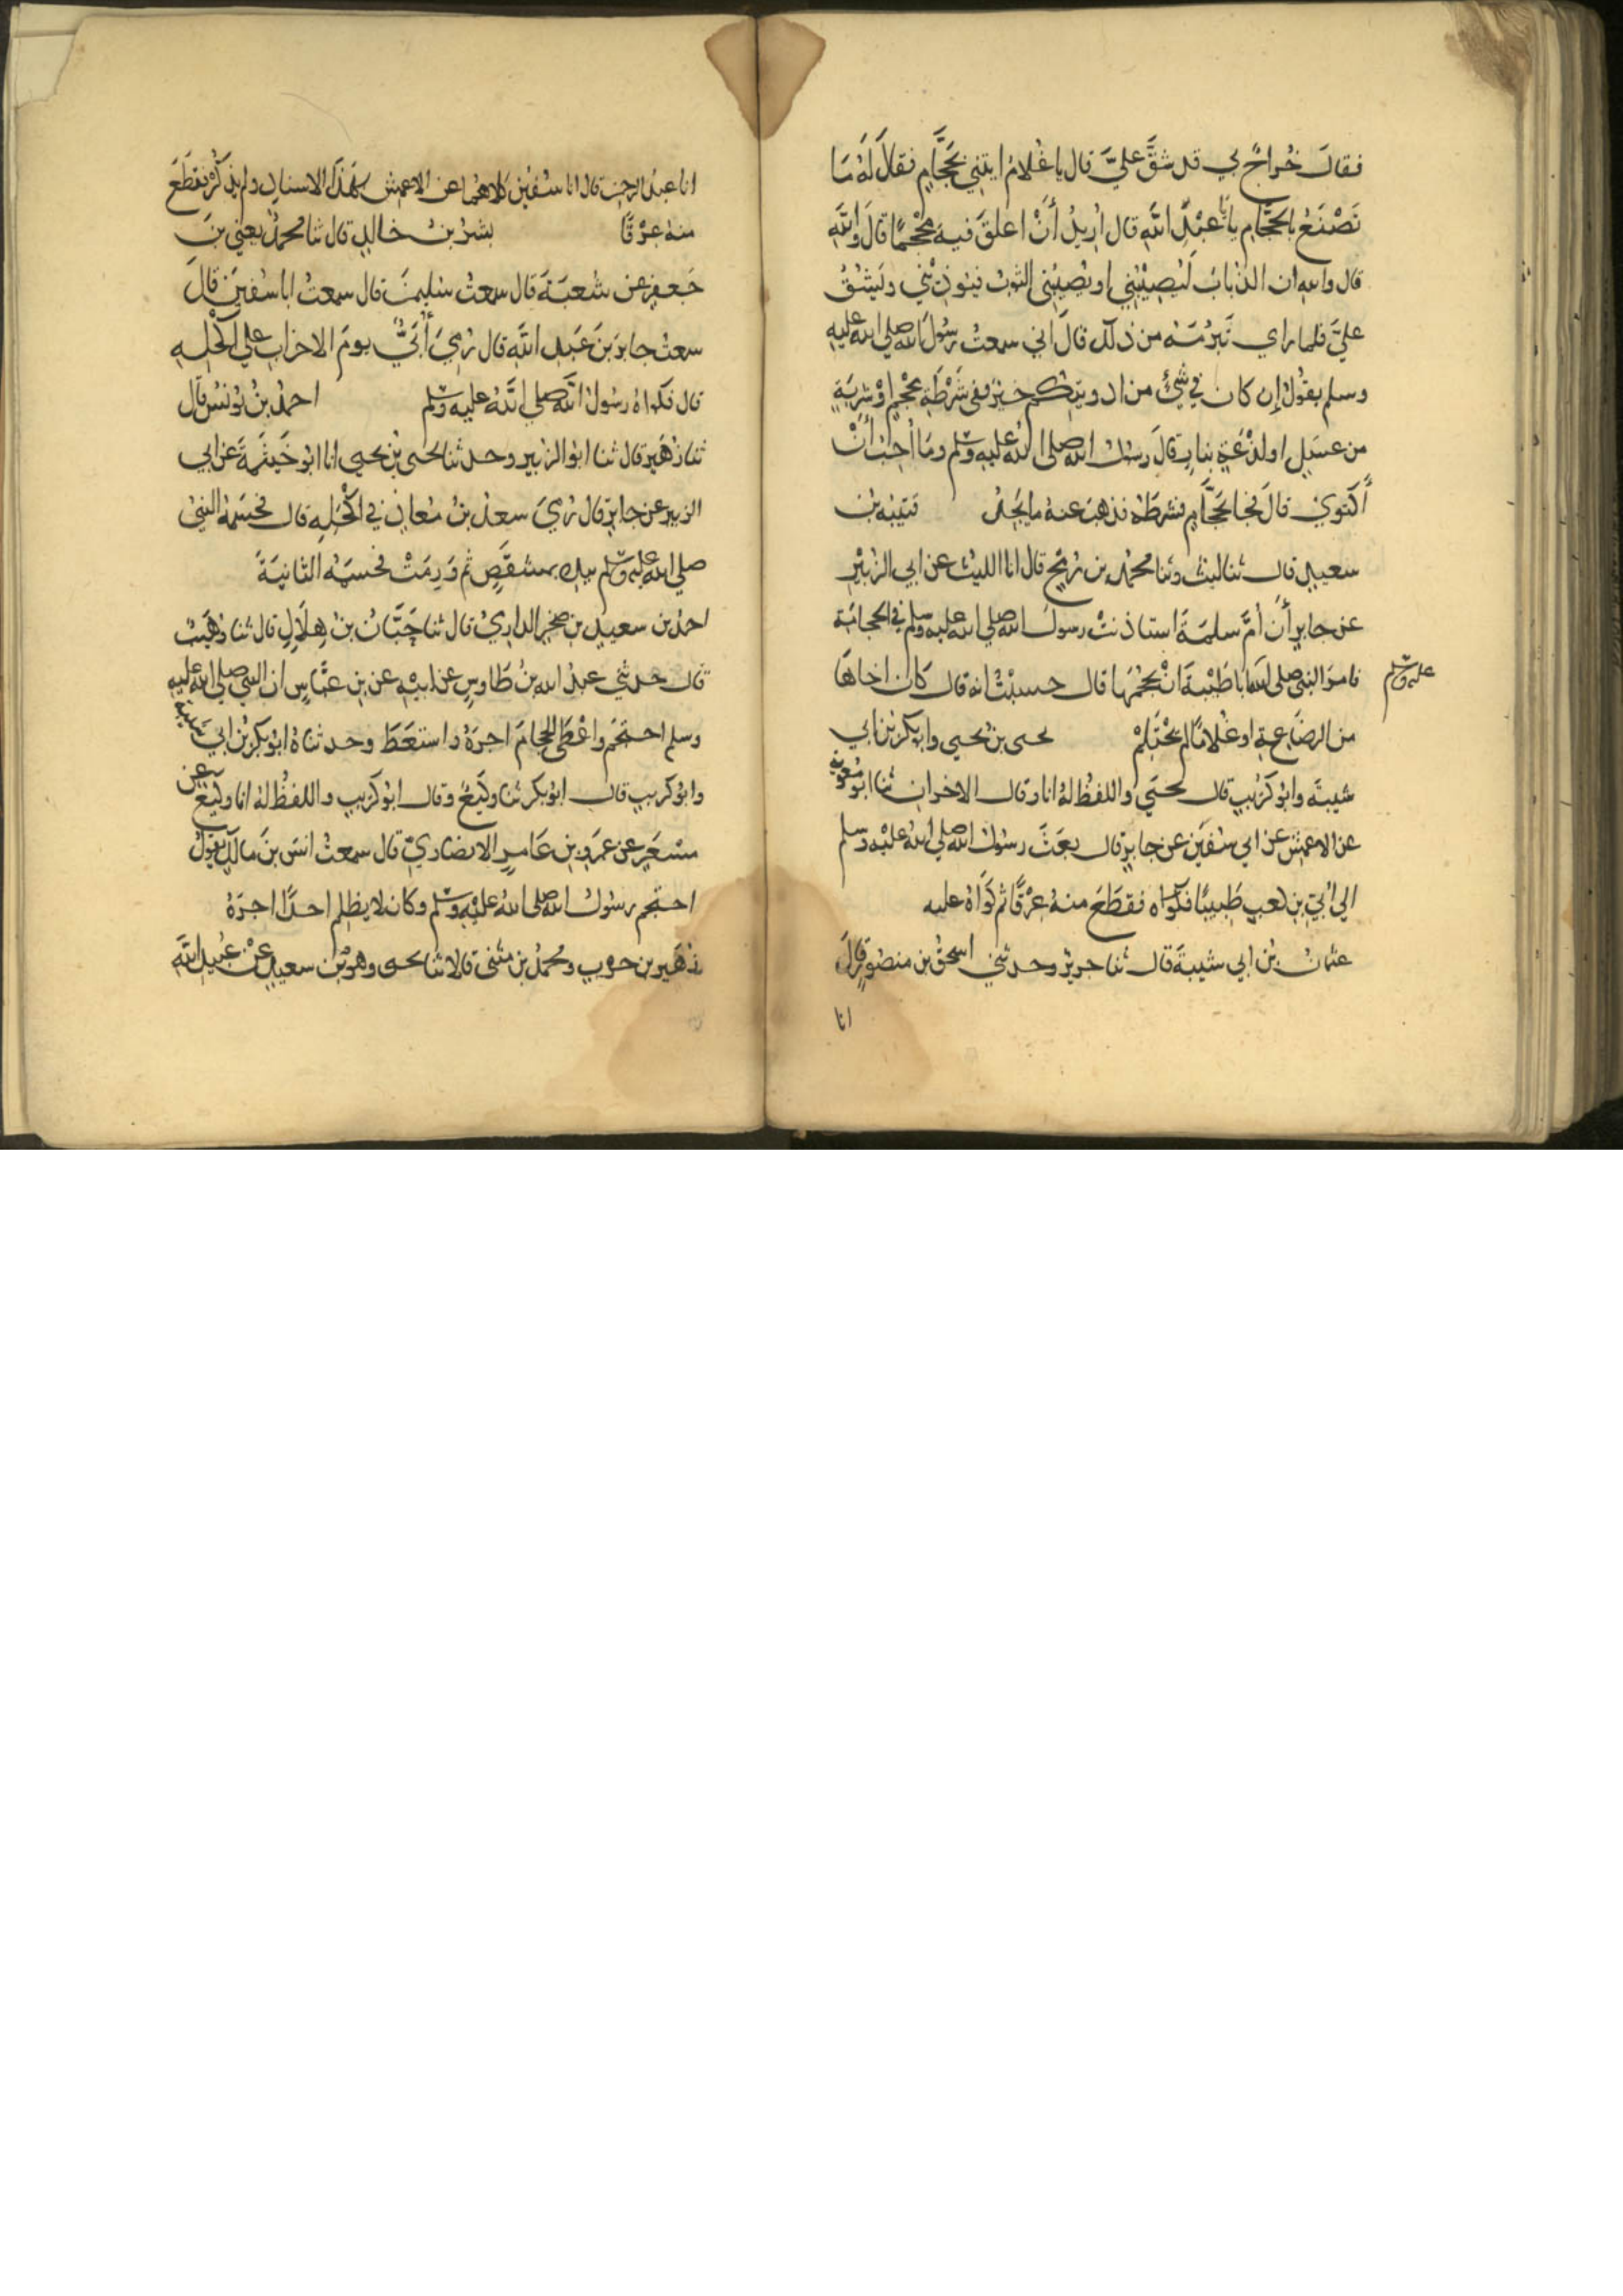 فقالَ خُراجٌ بي قد شقَّ عليَّ قال يا غُلامُ ايتني بحَجَّامٍ فقالَ لَهُ مَا
تَصْنَعُ بالحَجَّامِ يا ابا عَبْدِ اللَّهِ قال اُرِيدُ أَنْ اعلقَ فيهِ مِحْجَمًا قالَ واللهِ
قال والله ان الذبابَ لَيُصِيْبُنِي او يُصِيْبُنِي الثوبُ فيُوذِيْنِي ويَشُقُّ
عليَّ فلما راي تَبَرُّمَهُ من ذلك قالَ اني سمعتُ رسُولَ الله صلى الله عليه
وسلم يقُولُ إن كان في شَيْءٍ من ادويتكم خيرٌ ففي شَرْطَةِ مِحْجَمٍ اوْ شَرْبَةٍ
من عسَلٍ او لذْعَةٍ بنارٍ قالَ رسُولُ الله صلى اللهُ عليه وسلم ومَا اُحِبُّ أَنْ
أَكتوي قالَ فجا بحَجَّامٍ فشرطَهُ فذهبَ عنهُ ما يَجِدُ قتيبه بن
سعيدٍ قال ثنا ليث وثنا محمد بن رُمْحٍ قال انا الليث عن ابي الزبَيْرِ
عن جابرٍ أَن اُمَّ سلمَةَ استاذنتْ رسولَ الله صلي الله عليه وسلم في الحجامَة
فامرَ النبي صلى الله ابا طَيْبةَ انْ يَحْجُمَها قال حسبْتُ انه قال كَان اخاهَا
عليه وسلم
من الرضَاعة او غُلامًا لم يَحْتَلِمْ يحيى بن يحيى وابو بكر بن ابي
شيبةَ وابُو كُرَيبٍ قال يَحيَي واللفظ لهُ انا وقال الاخران ثنا ابو معوية
عن الاعمش عن ابي سُفيَن عن جابرٍ قال بعَثَ رسُولُ الله صلى اللهُ عليْه وسلم
الي اُبَيّ بن كعبٍ طَبِيبًا فكَوَاه فقطَعَ منهُ عِرْقًا ثم كَوَاهُ عليه
عثمانُ بنُ ابي شيبةَ قال ثنا جريرٌ وحدثني اسحقُ بن منصُورٍ قالَ
انا
انا عبدُ الرحمن قال انا سُفين كلاهُما عن الاعمش بهَذَا الاسنادِ ولم يذكُرْ فقطَعَ
منهُ عِرْقًا بشرُ بنُ خالدٍ قال ثنا محمدٌ يعْني بنَ
جَعفرٍ عن شُعبَةَ قال سمعتُ سليمنَ قال سمعتُ ابا سُفيَن قالَ
سمعتُ جابرَ بنَ عَبدِ اللَّهِ قال رُمِيَ أُبَيٌّ يومَ الاحزاب علي اكْحَلِهِ
قال فكواهُ رسُولُ الله صلى اللهُ عليه وسلم احمدُ بنُ يُونُسَ قال
ثنا زهَير قال ثنا ابو الزبير وحدثنا يحيى بن يحيى انا ابو خَيثَمَةَ عَن ابي
الزبير عن جابرٍ قال رُمِيَ سعدُ بنُ مُعاذٍ في اكْحَلِهِ قال فحسَمَهُ النبيُ
صلي الله عليه وسلم بيده بمشقَصٍ ثم وَرِمَتْ فحسَمَهُ الثانيَةَ
احمدُ بن سعيدِ بن صخرٍ الدارميُّ قال ثنا حَبَّانُ بنُ هِلَالٍ قال ثنا وُهَيبٌ
قال حدثني عبدُ الله بنُ طَاوسٍ عن ابيْهِ عن بن عبَّاسٍ ان النبي صلي الله عليه
وسلم احتجَم واعْطَى الحجامَ اجرَهُ واستعَطَ وحدثناهُ ابُو بكر بنُ ابي شيبة
وابُو كريبٍ قال ابُو بكر ثنا وكيعٌ وقال ابُو كُريبٍ واللفظُ لهُ انا وكيعٌ عن
مسْعَرٍ عن عَمرو بن عَامرٍ الانصَاريّ قال سمعتُ انسَ بنَ مالكٍ يقُولُ
احتجم رسُولُ الله صلى اللهُ عليْه وسلم وكان لا يظلِم احدًا اجرَهُ
زُهَير بن حربٍ ومحمدُ بن مثنى قالا ثنا يحيى وهو بن سعيدٍ عن عُبيدِ اللَّهِ